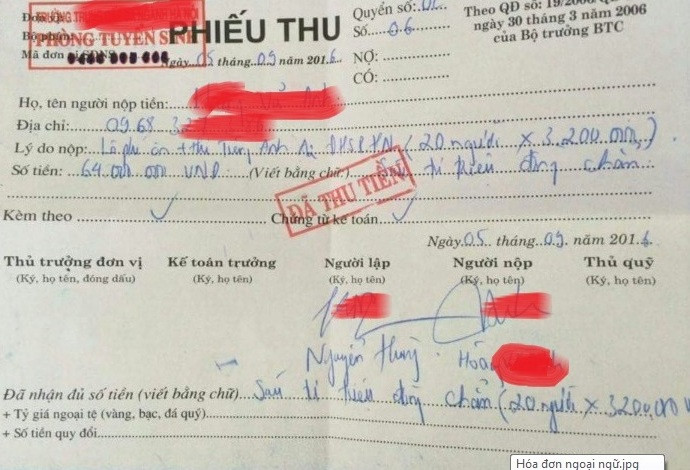 Quyển số: 02
Theo QĐ số: 19/2006
PHIẾU THU
Số 06
ngày 30 tháng 3 năm 2006
của Bộ trưởng BTC
Đơn vị:
Bộ phận:
PHÒNG TUYỂN SINH
Mã đơn vị SDNS
Ngày 05 tháng 09 năm 2016
NỢ:
CÓ:
Họ, tên người nộp tiền:
Địa chỉ: 0968 3
Lý do nộp: Lệ phí ôn + thi Tiếng Anh (20 người x 3.200.000
Số tiền: 64.000.000 VNĐ (Viết bằng chữ) Sáu tư triệu đồng chẵn
ĐÃ THU TIỀN
Kèm theo Chứng từ kế toán
Ngày 05 tháng 09 năm 2016
Thủ trưởng đơn vị Kế toán trưởng Người lập Người nộp Thủ quỹ
(Ký, họ tên, đóng dấu) (Ký, họ tên) (Ký, họ tên) (Ký, họ tên) (Ký, họ tên)
Nguyễn Hùng Hoàng
Đã nhận đủ số tiền (viết bằng chữ) Sáu tư triệu đồng chẵn (20 người x 3200.000
+ Tỷ giá ngoại tệ (vàng, bạc, đá quý)
+ Số tiền quy đổi
Hóa đơn ngoại ngữ.jpg